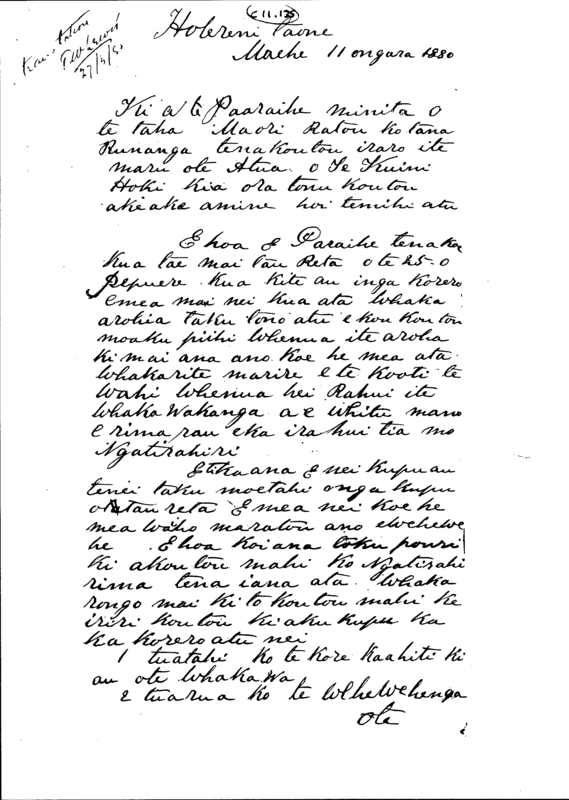 E 11.135
Translation
27/4/80
Holereni Taone
Maehe 11 ongara 1880
Ki a te Paaraihe minita O
te taha Maori Ratou ko tana
Runanga tenakoutou iraro ite
maru ote Atua. o Te Kuini
Hoki kia ora tonu koutou
ake ake amine hoi temihi atu
Ehoa E Paraihe tenakoe
kua tae mai tau Reta o te 25 o
Pepuere kua kite au inga korero
emea mai nei kua ata whaka
arohia taku tono atu e koutou
moaku piihi whenua ite aroha
ki mai ana ano koe he mea ata
whakarite marire e te kooti te
wahi whenua hei Rahui ite
whaka Wakanga a e whitu mano
e rima rau eka ira hui tia mo
Ngatirahiri
Etika ana Enei kupu au
tenei taku moetahi onga kupu
o tau reta E mea nei koe he
mea waho maratou ano ewehewe
he. Ehoa koiana toku pouri
ki akoutou mahi ko Ngatirahi
rima tena iana ata. Whaka
rongo mai ki to koutou mahi ke
iriri koutou ki aku kupu ka
ka korero atu nei
1 tuatahi ko te kore kaahiti ki
au ote whakaWa
2 tuarua ko te Wehewehenga
ote